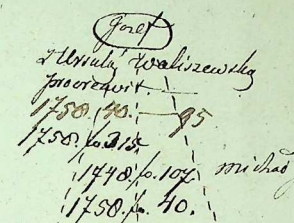 Józef
z Urszulą Waliszewską
procreavit.
1758. 40. — 95
1758. fo. 315.
1748. fo. 107. michał
1758. fo. 40.